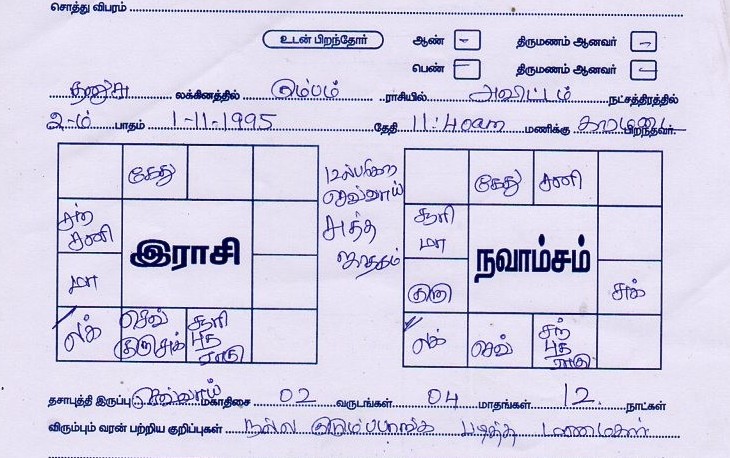 சொத்து விபரம்
உடன் பிறந்தோர் ஆண் - திருமணம் ஆனவர் -
பெண் - திருமணம் ஆனவர் -
தனுசு லக்கினத்தில் கும்பம் ராசியில் அவிட்டம் நட்சத்திரத்தில்
பாதம் 1-11-1995 தேதி 11:40 மணிக்கு காரமடை பிறந்தவர்.
கேது
சந்
சனி
மா
லக்
செவ்
குரு சுக்
சூரி
புத
ராகு
இராசி
செவ்வாய்
சுத்த
ஜாதகம்
கேது சனி
சூரி
மா
குரு
சுக்
லக்
செவ்
சந்
புத
ராகு
நவாம்சம்
தசாபுத்தி இருப்பு செவ்வாய் மகாதிசை 02 வருடங்கள் 04 மாதங்கள் 12 நாட்கள்
விரும்பும் வரன் பற்றிய குறிப்புகள் நல்ல குடும்பபாங்கான படித்த மணமகன்